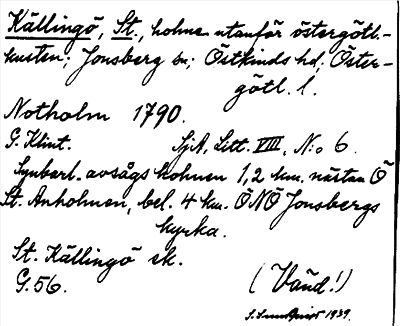 Källingö, St., holme utanför östergötl.-
kusten; Jonsberg sn; Östkinds hd; Öster-
götl. l.
Notholm 1790.
G. Klint. SjA, Litt. VIII, N:o 6.
Synbarl. avsågs holmen 1,2 km. nästan Ö
St. Anholmen, bel. 4 km. ÖNÖ Jonsbergs
kyrka.
St. Källingö ek.
G.56.
(Vänd!)
1939.